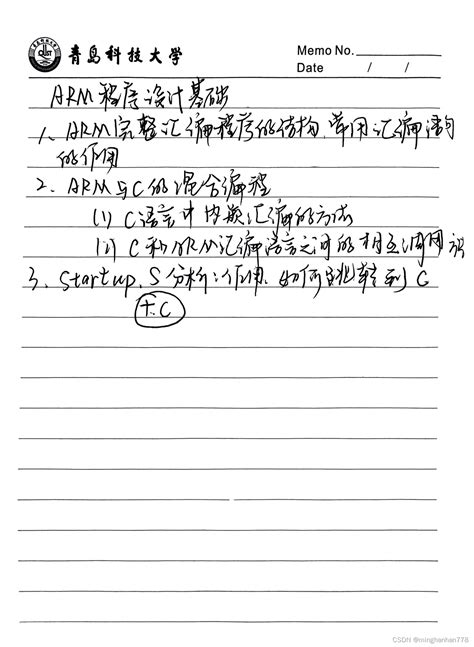 青岛科技大学
Memo No.
Date / /
ARM程序设计基础
1、ARM完整汇编程序的结构,常用汇编语句
的作用
2、ARM与C的混合编程
(1) C语言中内嵌汇编的方法
(2) C和ARM汇编语言之间的相互调用
3、Startup.S分析:作用、如何跳转到C
t.C
CSDN @minghanhan778